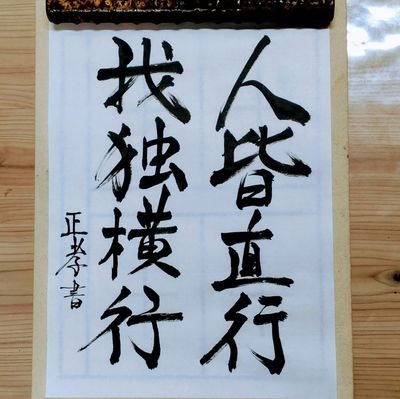 人皆直行
我独横行
正孝書